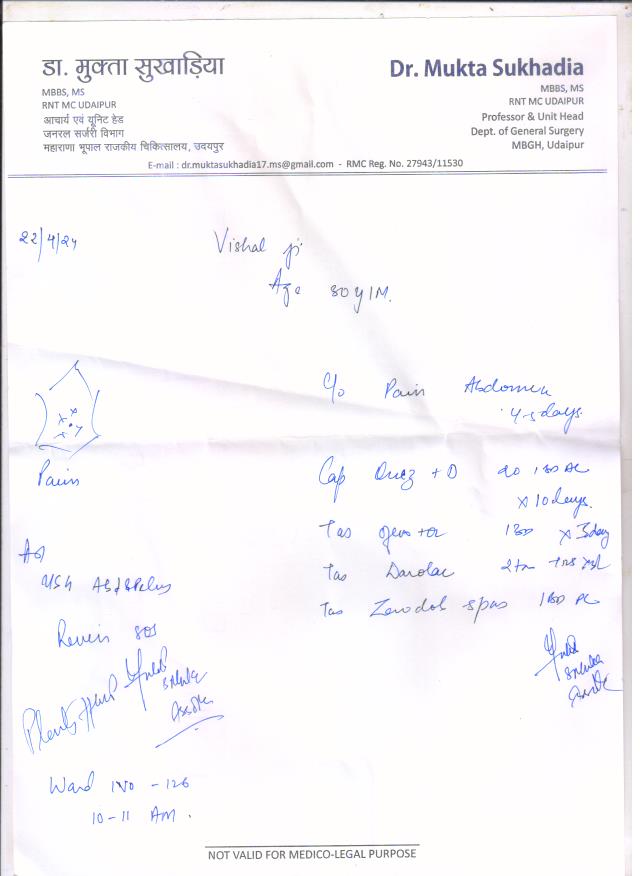 डा. मुक्ता सुखाड़िया
MBBS, MS
RNT MC UDAIPUR
आचार्य एवं यूनिट हेड
जनरल सर्जरी विभाग
महाराणा भूपाल राजकीय चिकित्सालय, उदयपुर
Dr. Mukta Sukhadia
MBBS, MS
RNT MC UDAIPUR
Professor & Unit Head
Dept. of General Surgery
MBGH, Udaipur
E-mail : dr.muktasukhadia17.ms@gmail.com - RMC Reg. No. 27943/11530
22/4/24
Vishal ji
Age 80 y/M.
c/o Pain Abdomen
4-5 days.
Pain
Cap + D
x 10 days.
Tab 1 BD x 3 day
Tab Darolac
Tab Zerodol spas 1 BD PC
Adv
USG Abd & Pelvis
Review SOS
Ward No - 126
10-11 AM.
NOT VALID FOR MEDICO-LEGAL PURPOSE